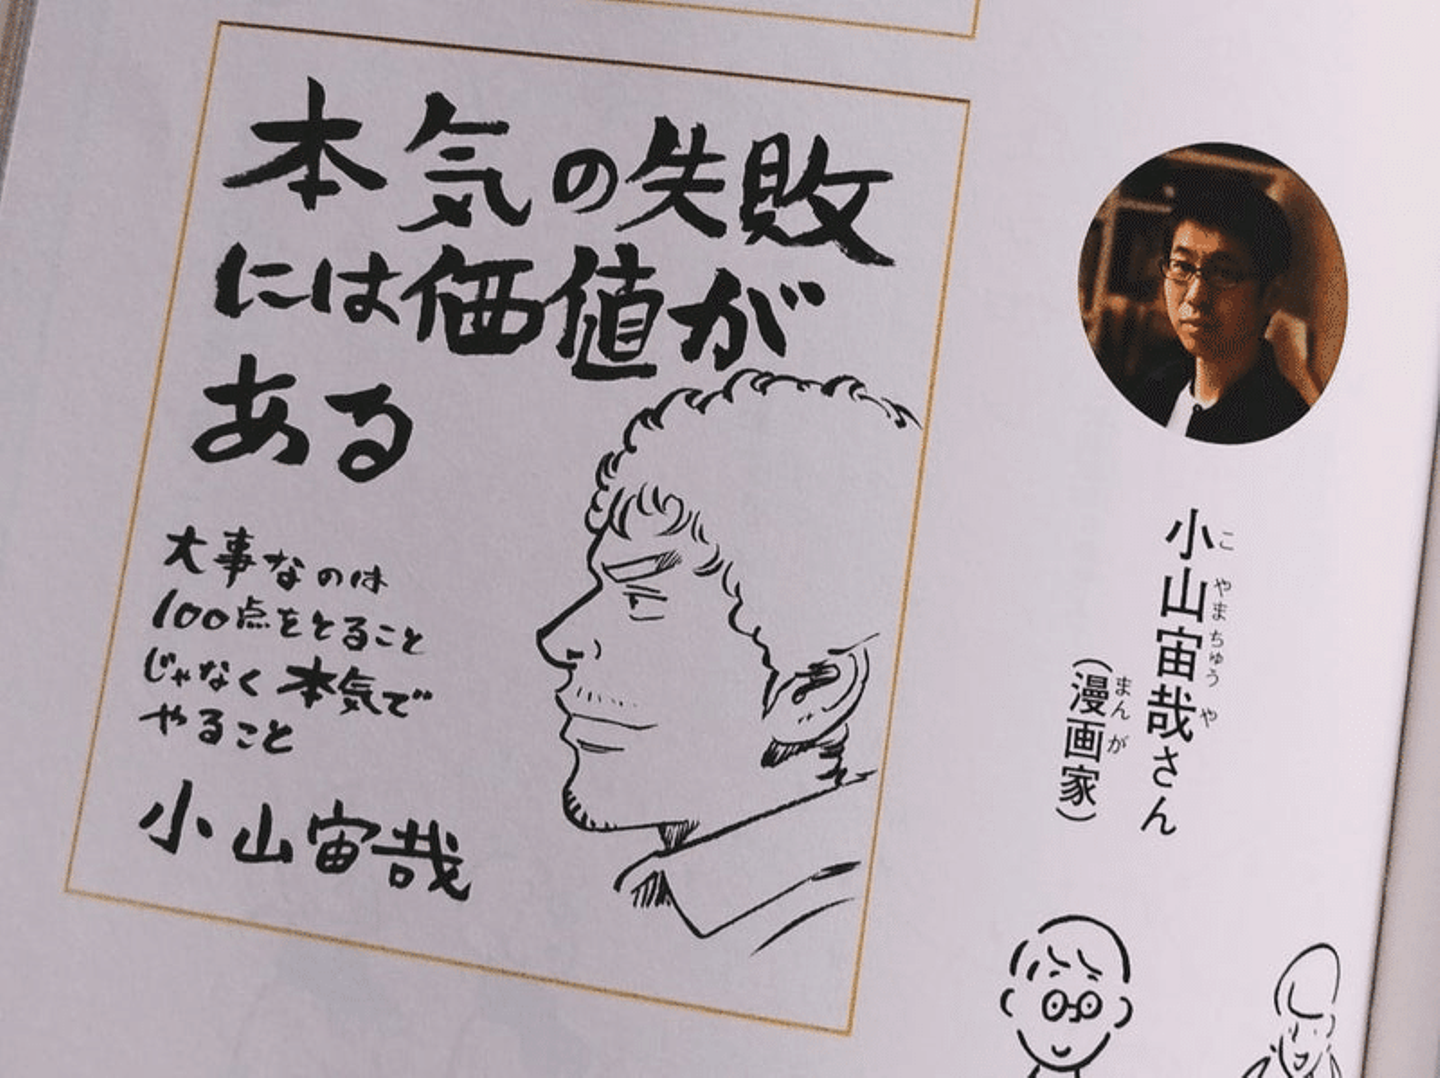 本気の失敗
には価値が
ある
大事なのは
100点をとること
じゃなく本気で
やること
小山宙哉
小山宙哉さん
こやまちゅうや
(漫画家)
まんが